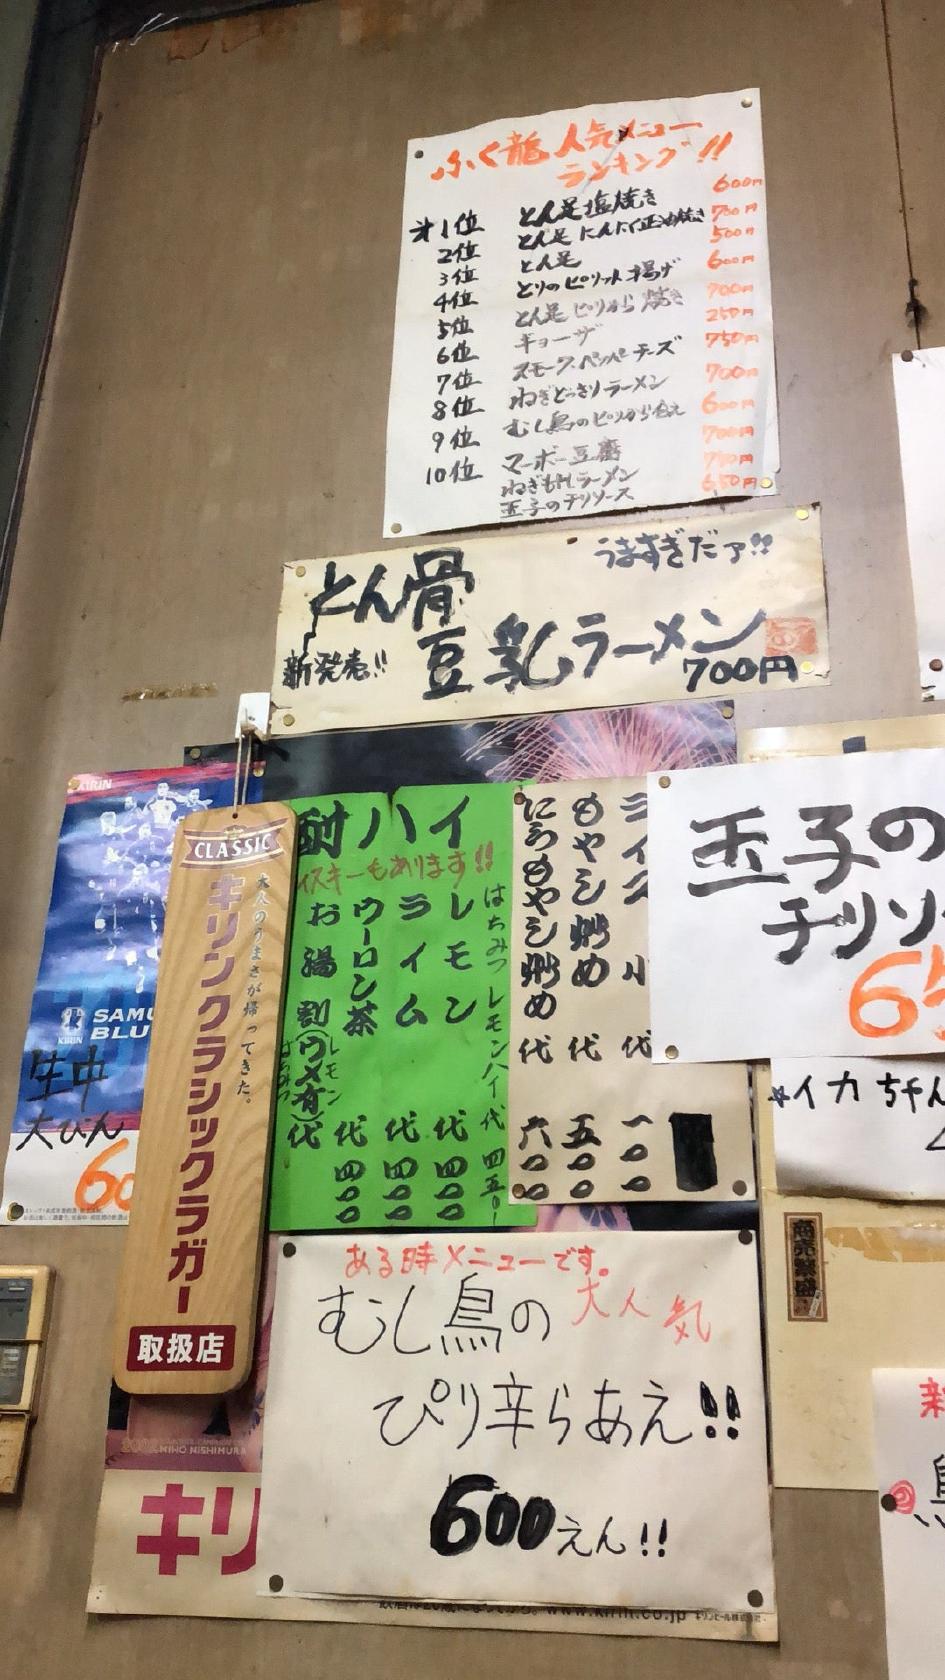 ふく龍 人気メニュー
ランキング!!
オ1位 とん足塩焼き 600円
2位 とん足 にんにく正油焼き 700円
3位 とん足 500円
4位 とりのピリット揚げ 600円
5位 とん足ピリから焼き 700円
6位 ギョーザ 250円
7位 スモークペッパーチーズ 750円
8位 ねぎどっさりラーメン 700円
9位 むし鳥のピリから合え 600円
10位 マーボー豆腐 700円
ねぎもやしラーメン
玉子のチリソース 650円
うますぎだァ!!
とん骨
豆乳ラーメン
新発売!!
700円
KIRIN
SAMU
BLU
KIRIN
生中
大びん
60
CLASSIC
大人のうまさが帰ってきた。
キリンクラシックラガー
取扱店
酎ハイ
イスキーもあります!!
はちみつレモンハイ 代 四五〇
レモン 代 四〇〇
ライム 代 四〇〇
ウーロン茶 代 四〇〇
お湯割(ウメ有) 代
レモン
はちみつ
ライス 小 代 一〇〇
もやし炒め 代 五〇〇
にらもやし炒め 代 六〇〇
玉子の
チリソ
65
イカ
商売繁盛
ある時メニューです。
むし鳥の 大人気
ぴり辛らあえ!!
600えん!!
MIHO NISHIMURA
キリ
www.kirin.co.jp
新
鳥